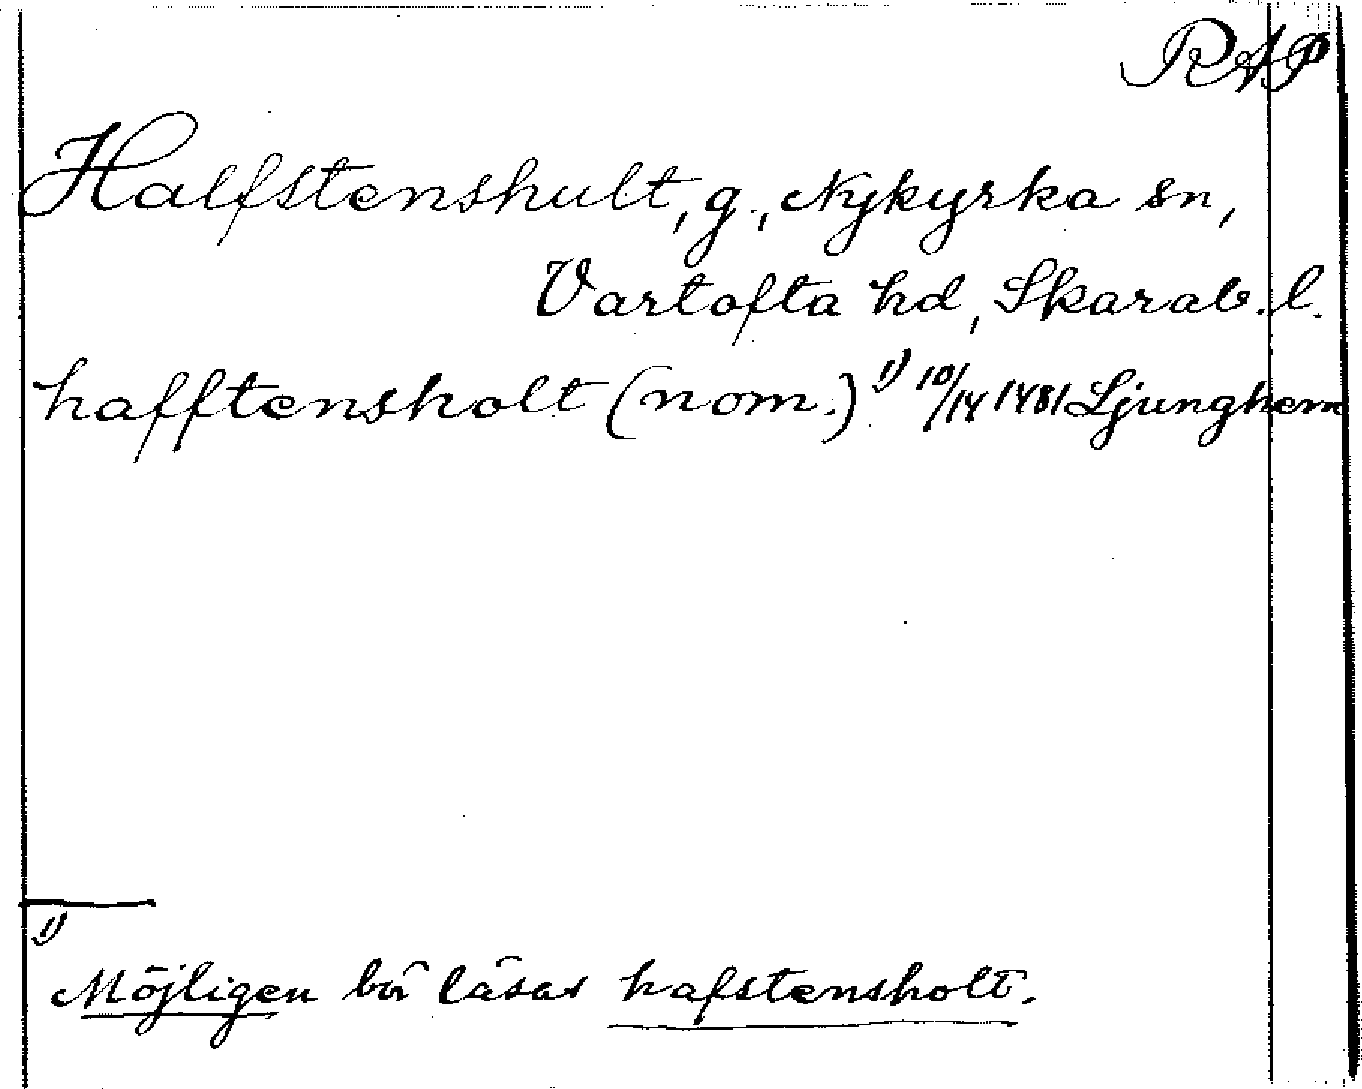 RAP
Halfstenshult, g., Nykyrka sn,
Vartofta hd, Skarab. l.
hafftensholt (nom.) 1) 10/14 1481 Ljunghem
1)
Möjligen bör läsas hafstensholt.